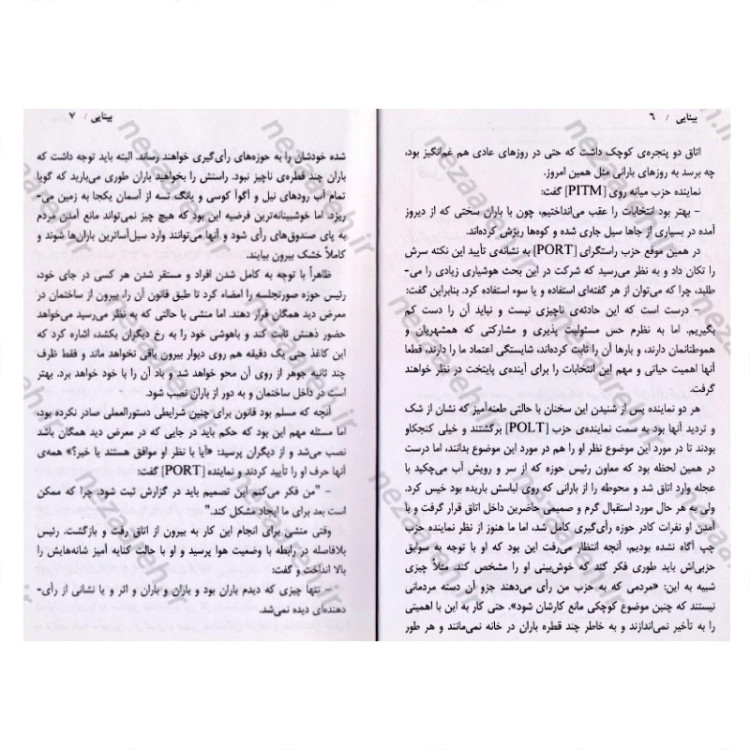 بینایی / ۶
اتاق دو پنجره‌ی کوچک داشت که حتی در روزهای عادی هم غم‌انگیز بود،
چه برسد به روزهای بارانی مثل همین امروز.
نماینده حزب میانه روی [PITM] گفت:
– بهتر بود انتخابات را عقب می‌انداختیم، چون با باران سختی که از دیروز
آمده در بسیاری از جاها سیل جاری شده و کوه‌ها ریزش کرده‌اند.
در همین موقع حزب راستگرای [PORT] به نشانه‌ی تأیید این نکته سرش
را تکان داد و به نظر می‌رسید که شرکت در این بحث هوشیاری زیادی را می-
طلبد، چرا که می‌توان از هر گفته‌ای استفاده و یا سوء استفاده کرد. بنابراین گفت:
– درست است که این حادثه‌ی ناچیزی نیست و نباید آن را دست کم
بگیریم. اما به نظرم حس مسئولیت پذیری و مشارکتی که همشهریان و
هموطنانمان دارند، و بارها آن را ثابت کرده‌اند، شایستگی اعتماد ما را دارند، قطعا
آنها اهمیت حیاتی و مهم این انتخابات را برای آینده‌ی پایتخت در نظر خواهند
گرفت.
هر دو نماینده پس از شنیدن این سخنان با حالتی طعنه‌آمیز که نشان از شک
و تردید آنها بود به سمت نماینده‌ی حزب [POLT] برگشتند و خیلی کنجکاو
بودند تا در مورد این موضوع نظر او را هم در مورد این موضوع بدانند، اما درست
در همین لحظه بود که معاون رئیس حوزه که از سر و رویش آب می‌چکید با
عجله وارد اتاق شد و محوطه را از بارانی که روی لباسش باریده بود خیس کرد.
ولی به هر حال مورد استقبال گرم و صمیمی حاضرین داخل اتاق قرار گرفت و با
آمدن او نفرات کادر حوزه رأی‌گیری کامل شد، اما ما هنوز از نظر نماینده حزب
چپ آگاه نشده بودیم. آنچه انتظار می‌رفت این بود که او با توجه به سوابق
حزبی‌اش باید طوری فکر کند که خوش‌بینی او را مشخص کند. مثلاً چیزی
شبیه به این: «مردمی که به حزب من رأی می‌دهند جزو آن دسته مردمانی
نیستند که چنین موضوع کوچکی مانع کارشان شود». حتی کار به این با اهمیتی
را به تأخیر نمی‌اندازند و به خاطر چند قطره باران در خانه نمی‌مانند و هر طور
بینایی / ۷
شده خودشان را به حوزه‌های رأی‌گیری خواهند رساند. البته باید توجه داشت که
باران چند قطره‌ی ناچیز نبود. راستش را بخواهید باران طوری می‌بارید که گویا
تمام آب رودهای نیل و آگوآ کوسی و یانگ تسه از آسمان یکجا به زمین می-
ریزد. اما خوشبینانه‌ترین فرضیه این بود که هیچ چیز نمی‌تواند مانع آمدن مردم
به پای صندوق‌های رأی شود و آنها می‌توانند وارد سیل‌آساترین باران‌ها شوند و
کاملاً خشک بیرون بیایند.
ظاهراً با توجه به کامل شدن افراد و مستقر شدن هر کسی در جای خود،
رئیس حوزه صورتجلسه را امضاء کرد تا طبق قانون آن را، بیرون از ساختمان در
معرض دید همگان قرار دهند. اما منشی با حالتی که به نظر می‌رسید می‌خواهد
حضور ذهنش ثابت کند و باهوشی خود را به رخ دیگران بکشد، اشاره کرد که
این کاغذ حتی یک دقیقه هم روی دیوار بیرون باقی نخواهد ماند و فقط ظرف
چند ثانیه جوهر از روی آن محو خواهد شد و باد آن را با خود خواهد برد. بهتر
است در داخل ساختمان و به دور از باران نصب شود.
آنچه که مسلم بود قانون برای چنین شرایطی دستورالعملی صادر نکرده بود،
اما مسئله مهم این بود که حکم باید در جایی که در معرض دید همگان باشد
نصب می‌شد و از دیگران پرسید: «آیا با نظر او موافق هستند یا خیر؟» همه‌ی
آنها حرف او را تأیید کردند و نماینده [PORT] گفت:
– "من فکر می‌کنم این تصمیم باید در گزارش ثبت شود. چرا که ممکن
است بعد برای ما ایجاد مشکل کند."
وقتی منشی برای انجام این کار به بیرون از اتاق رفت و بازگشت. رئیس
بلافاصله در رابطه با وضعیت هوا پرسید و او با حالت کنایه آمیز شانه‌هایش را
بالا انداخت و گفت:
– تنها چیزی که دیدم باران بود و باران و باران و اثر و یا نشانی از رأی-
دهنده‌ای دیده نمی‌شد.
nezaareh.ir